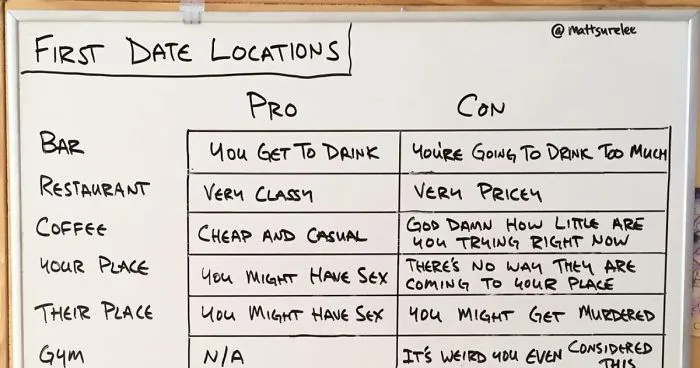 @mattsurelee
FIRST DATE LOCATIONS
PRO CON
BAR YOU GET TO DRINK YOU'RE GOING TO DRINK TOO MUCH
RESTAURANT VERY CLASSY VERY PRICEY
COFFEE CHEAP AND CASUAL GOD DAMN HOW LITTLE ARE
YOU TRYING RIGHT NOW
YOUR PLACE YOU MIGHT HAVE SEX THERE'S NO WAY THEY ARE
COMING TO YOUR PLACE
THEIR PLACE YOU MIGHT HAVE SEX YOU MIGHT GET MURDERED
GYM N/A IT'S WEIRD YOU EVEN CONSIDERED
THIS